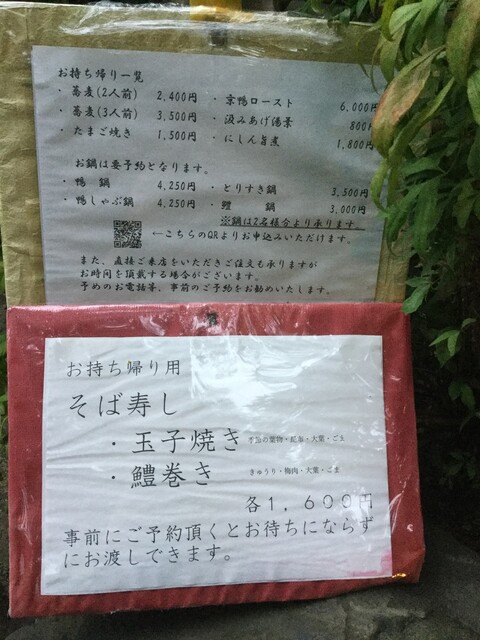 お持ち帰り一覧
・蕎麦(2人前) 2,400円 ・京鴨ロースト 6,000円
・蕎麦(3人前) 3,500円 ・汲みあげ湯葉 800円
・たまご焼き 1,500円 ・にしん旨煮 1,800円
お鍋は要予約となります。
・鴨 鍋 4,250円 ・とりすき鍋 3,500円
・鴨しゃぶ鍋 4,250円 ・鱧 鍋 3,000円
※鍋は2名様分より承ります。
←こちらのQRよりお申込みいただけます。
また、直接ご来店をいただきご注文も承りますが
お時間を頂戴する場合がございます。
予めのお電話等、事前のご予約をお勧めいたします。
お持ち帰り用
そば寿し
・玉子焼き の葉物・昆布・大葉・ごま
・鱧巻き きゅうり・梅肉・大葉・ごま
各1,600円
事前にご予約頂くとお待ちにならず
にお渡しできます。